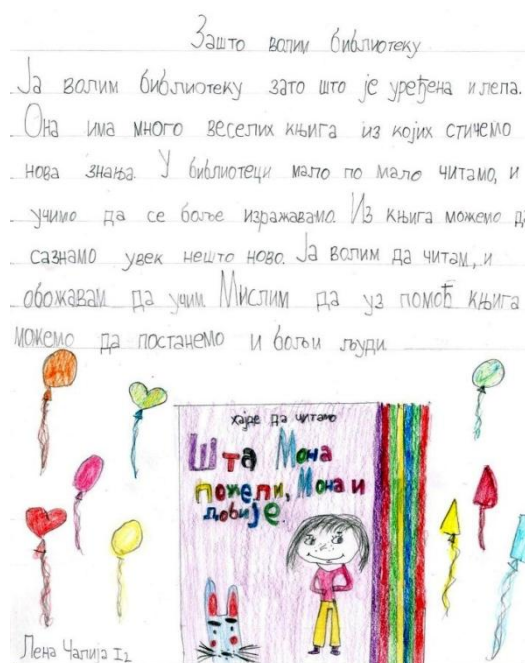 Зашто волим библиотеку
Ја волим библиотеку зато што је уређена и лепа.
Она има много веселих књига из којих стичемо
нова знања. У библиотеци мало по мало читамо, и
учимо да се боље изражавамо. Из књига можемо да
сазнамо увек нешто ново. Ја волим да читам, и
обожавам да учим Мислим да уз помоћ књига
можемо да постанемо и бољи људи
хајде да читамо
Шта Мона
пожели, Мона и
добије
Лена Чапија I2